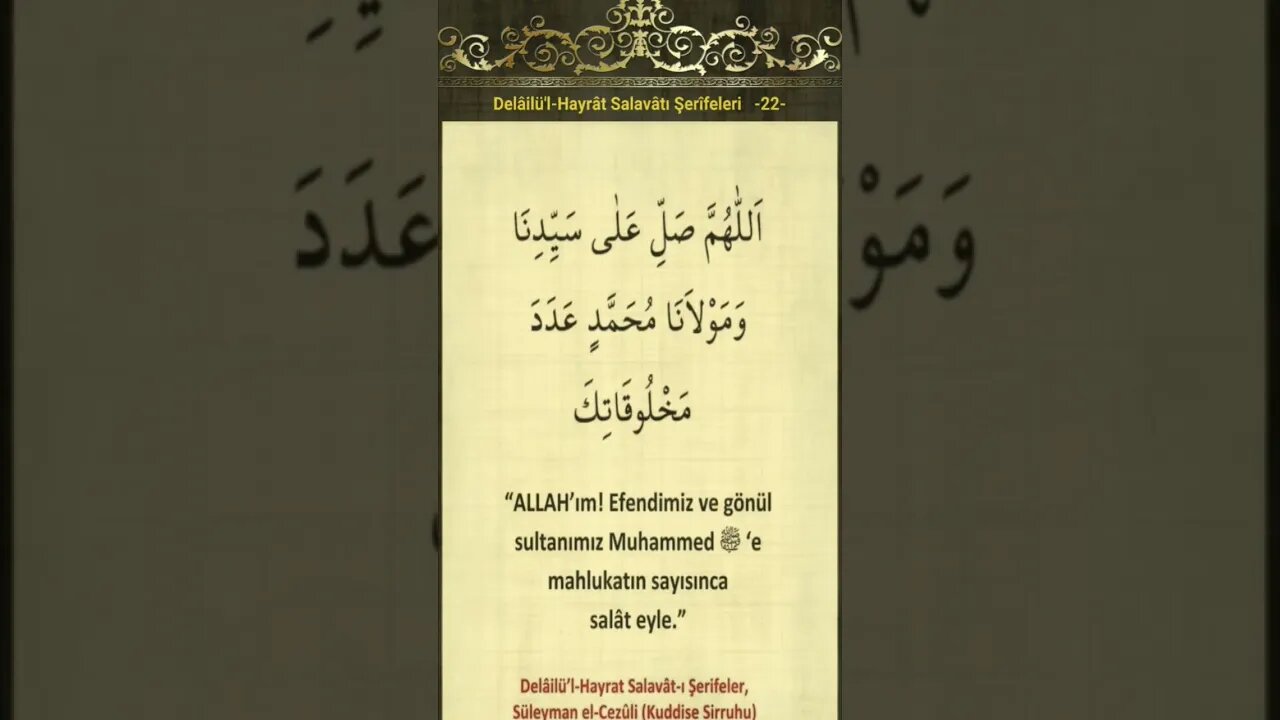 Delâilü'l-Hayrât Salavâtı Şerîfeleri -22-
اَللّٰهُمَّ صَلِّ عَلٰى سَيِّدِنَا
وَمَوْلَانَا مُحَمَّدٍ عَدَدَ
مَخْلُوقَاتِكَ
“ALLAH’ım! Efendimiz ve gönül
sultanımız Muhammed ﷺ ‘e
mahlukatın sayısınca
salât eyle.”
Delâilü’l-Hayrat Salavât-ı Şerifeler,
Süleyman el-Cezûli (Kuddise Sirruhu)